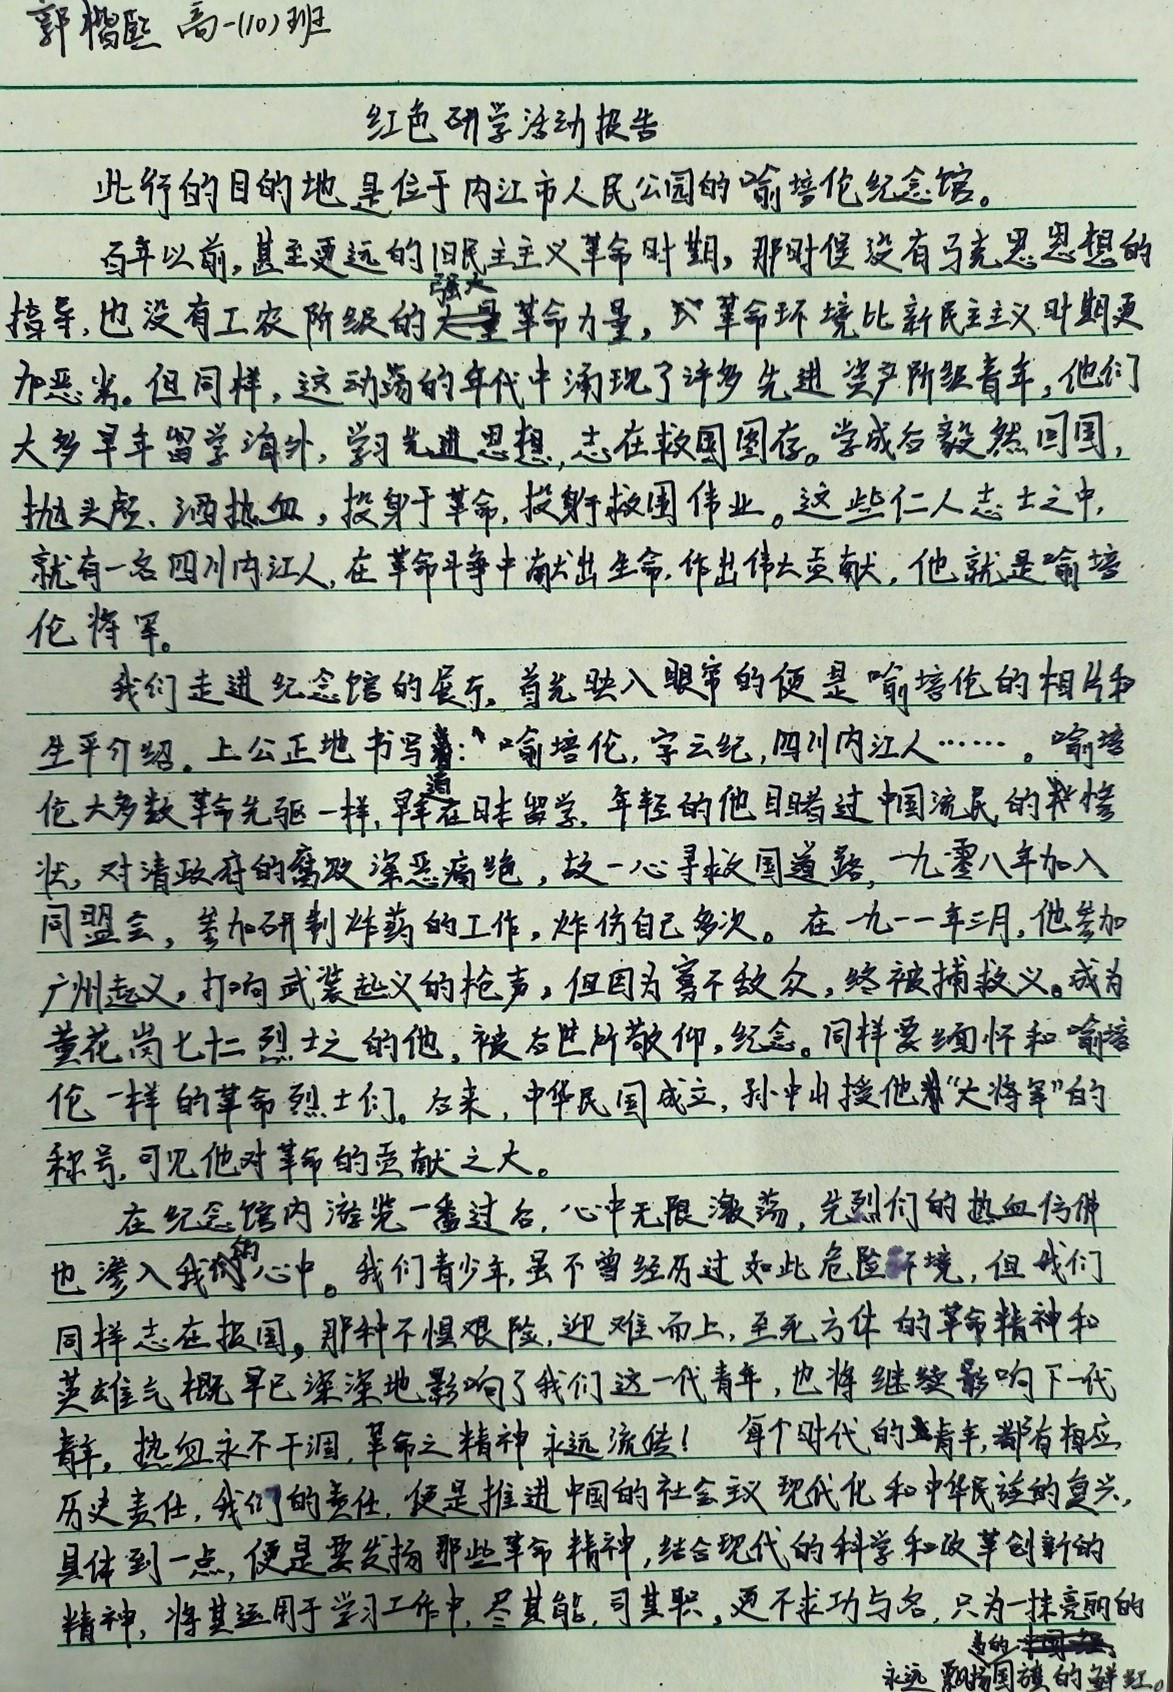 郭楷熙 高一(10)班
红色研学活动报告
此行的目的地是位于内江市人民公园的喻培伦纪念馆。
百年以前,甚至更远的旧民主主义革命时期,那时候没有马克思思想的
指导,也没有工农阶级的强大革命力量,革命环境比新民主主义时期更
加恶劣。但同样,这动荡的年代中涌现了许多先进资产阶级青年,他们
大多早年留学海外,学习先进思想,志在救国图存。学成后毅然回国,
抛头颅、洒热血,投身于革命,投身于救国伟业。这些仁人志士之中,
就有一名四川内江人,在革命斗争中献出生命,作出伟大贡献,他就是喻培
伦将军。
我们走进纪念馆的展厅,首先映入眼帘的便是喻培伦的相片和
生平介绍。上公正地书写着:“喻培伦,字云纪,四川内江人……。喻培
伦大多数革命先驱一样,早年在日本留学,年轻的他目睹过中国流民的惨
状,对清政府的腐败深恶痛绝,故一心寻救国道路,一九零八年加入
同盟会,参加研制炸药的工作,炸伤自己多次。在一九一一年三月,他参加
广州起义,打响武装起义的枪声,但因为寡不敌众,终被捕救义。成为
黄花岗七十二烈士之的他,被后世所敬仰,纪念。同样要缅怀和喻培
伦一样的革命烈士们。后来,中华民国成立,孙中山授他“大将军”的
称号,可见他对革命的贡献之大。
在纪念馆内游览一番过后,心中无限激荡,先烈们的热血仿佛
也渗入我们的心中。我们青少年,虽不曾经历过如此危险环境,但我们
同样志在报国,那种不惧艰险,迎难而上,至死方休的革命精神和
英雄气概早已深深地影响了我们这一代青年,也将继续影响下一代
青年,热血永不干涸,革命之精神永远流传!每个时代的青年,都有相应
历史责任,我们的责任,便是推进中国的社会主义现代化和中华民族的复兴,
具体到一点,便是要发扬那些革命精神,结合现代的科学和改革创新的
精神,将其运用于学习工作中,尽其能,司其职,更不求功与名,只为一抹亮丽的
永远飘扬着的国旗的鲜红。